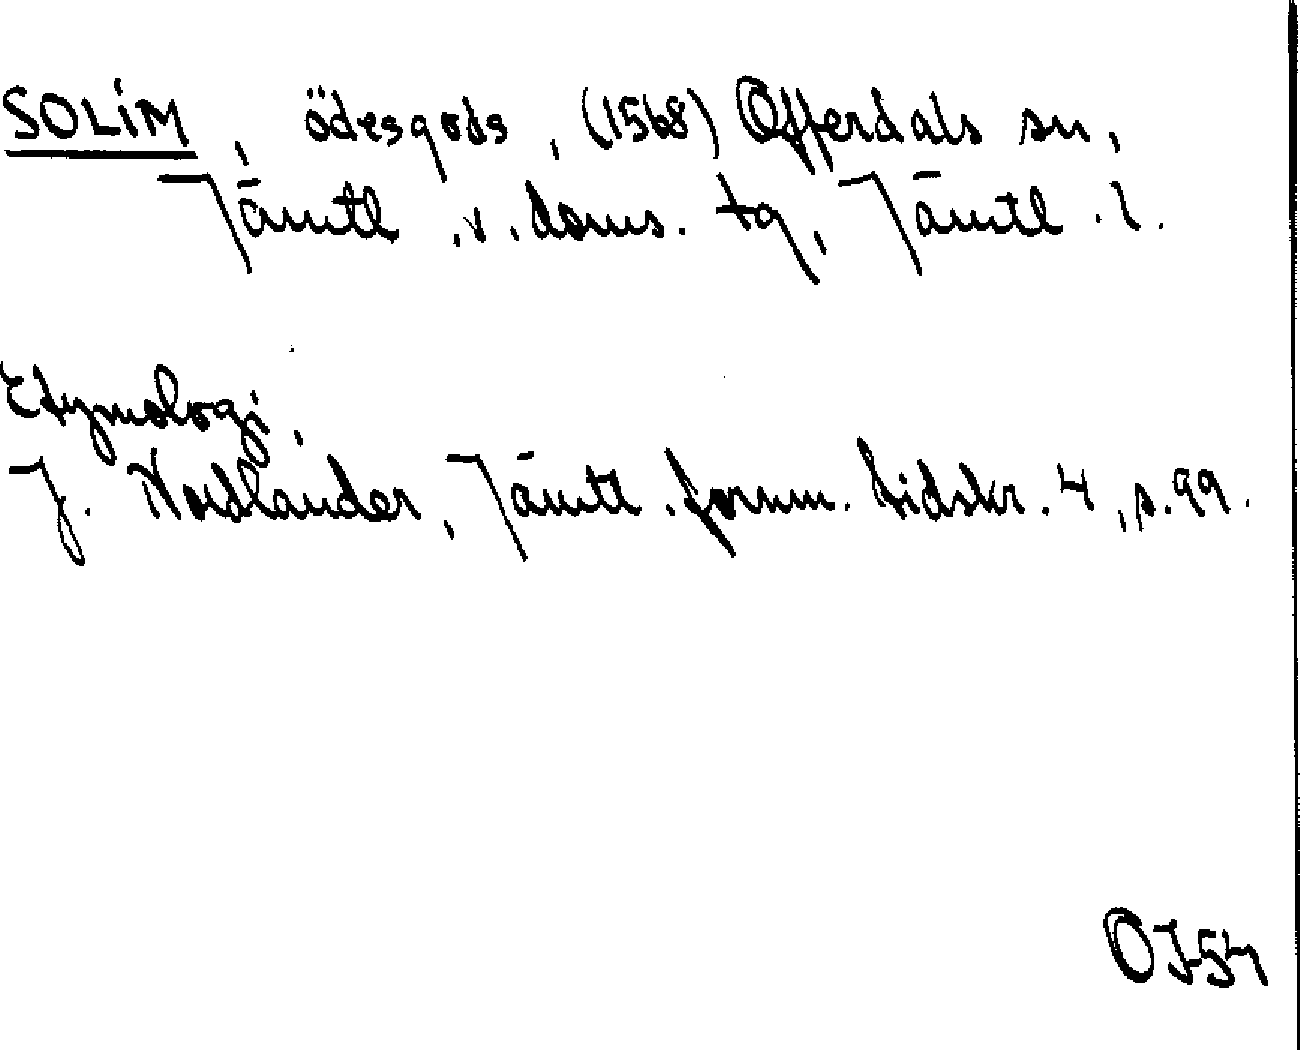 SOLIM, ödesgods, (1568) Offerdals sn,
Jämtl. v. doms. tg, Jämtl. l.
Etymologi,
J. Nordlander, Jämtl. fornm. tidskr. 4, s. 99.
OJ54